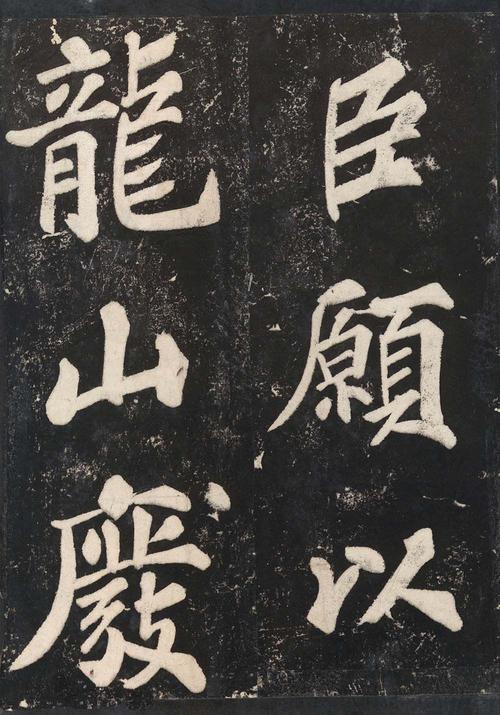 臣願以
龍山廢